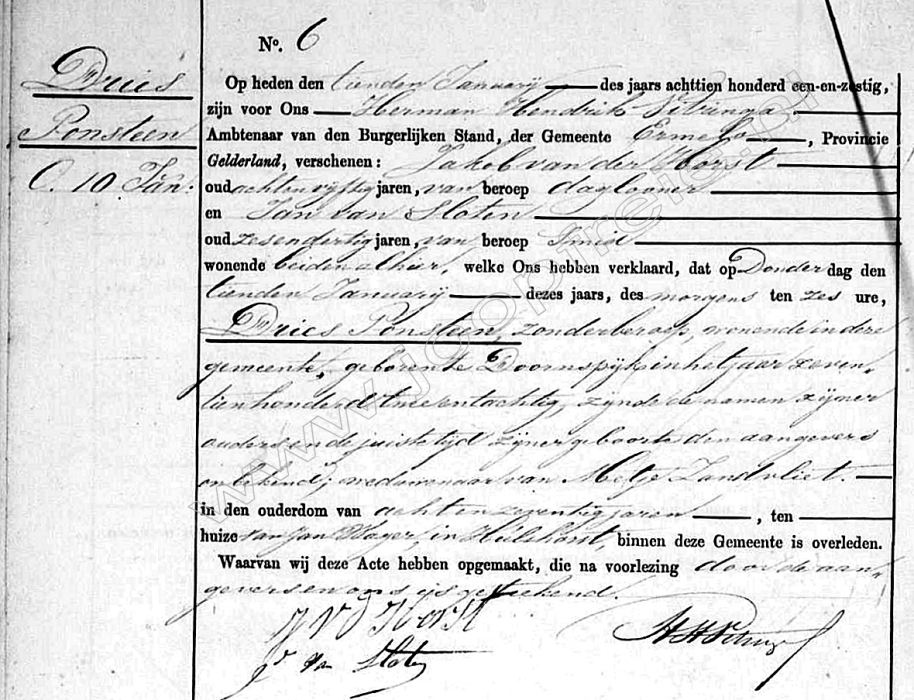 Dries
Ponsteen
O. 10 Jan:
No. 6
Op heden den tienden Januarij des jaars achttien honderd een-en-zestig,
zijn voor Ons Herman Hendrik Vitringa
Ambtenaar van den Burgerlijken Stand, der Gemeente Ermelo, Provincie
Gelderland, verschenen: Jakob van der Horst
oud achtenvijftig jaren, van beroep daglooner
en Jan van Sloten
oud zesendertig jaren, van beroep Smid
wonende beiden alhier, welke Ons hebben verklaard, dat op Donderdag den
tienden Januarij dezes jaars, des morgens ten zes ure,
Dries Ponsteen, zonder beroep, wonende in deze
gemeente, geboren te Doornspijk in het jaar zeven-
tienhonderd tweeentachtig, zijnde de namen zijner
ouders en de juiste tijd zijner geboorte den aangevers
onbekend; weduwenaar van Metje Zandvliet.
in den ouderdom van achtenzeventig jaren, ten
huize van Jan Hager, in Hulshorst, binnen deze Gemeente is overleden.
Waarvan wij deze Acte hebben opgemaakt, die na voorlezing door de aan-
gevers en ons is geteekend.
J V D Horst
J van Sloten
HHVitringa